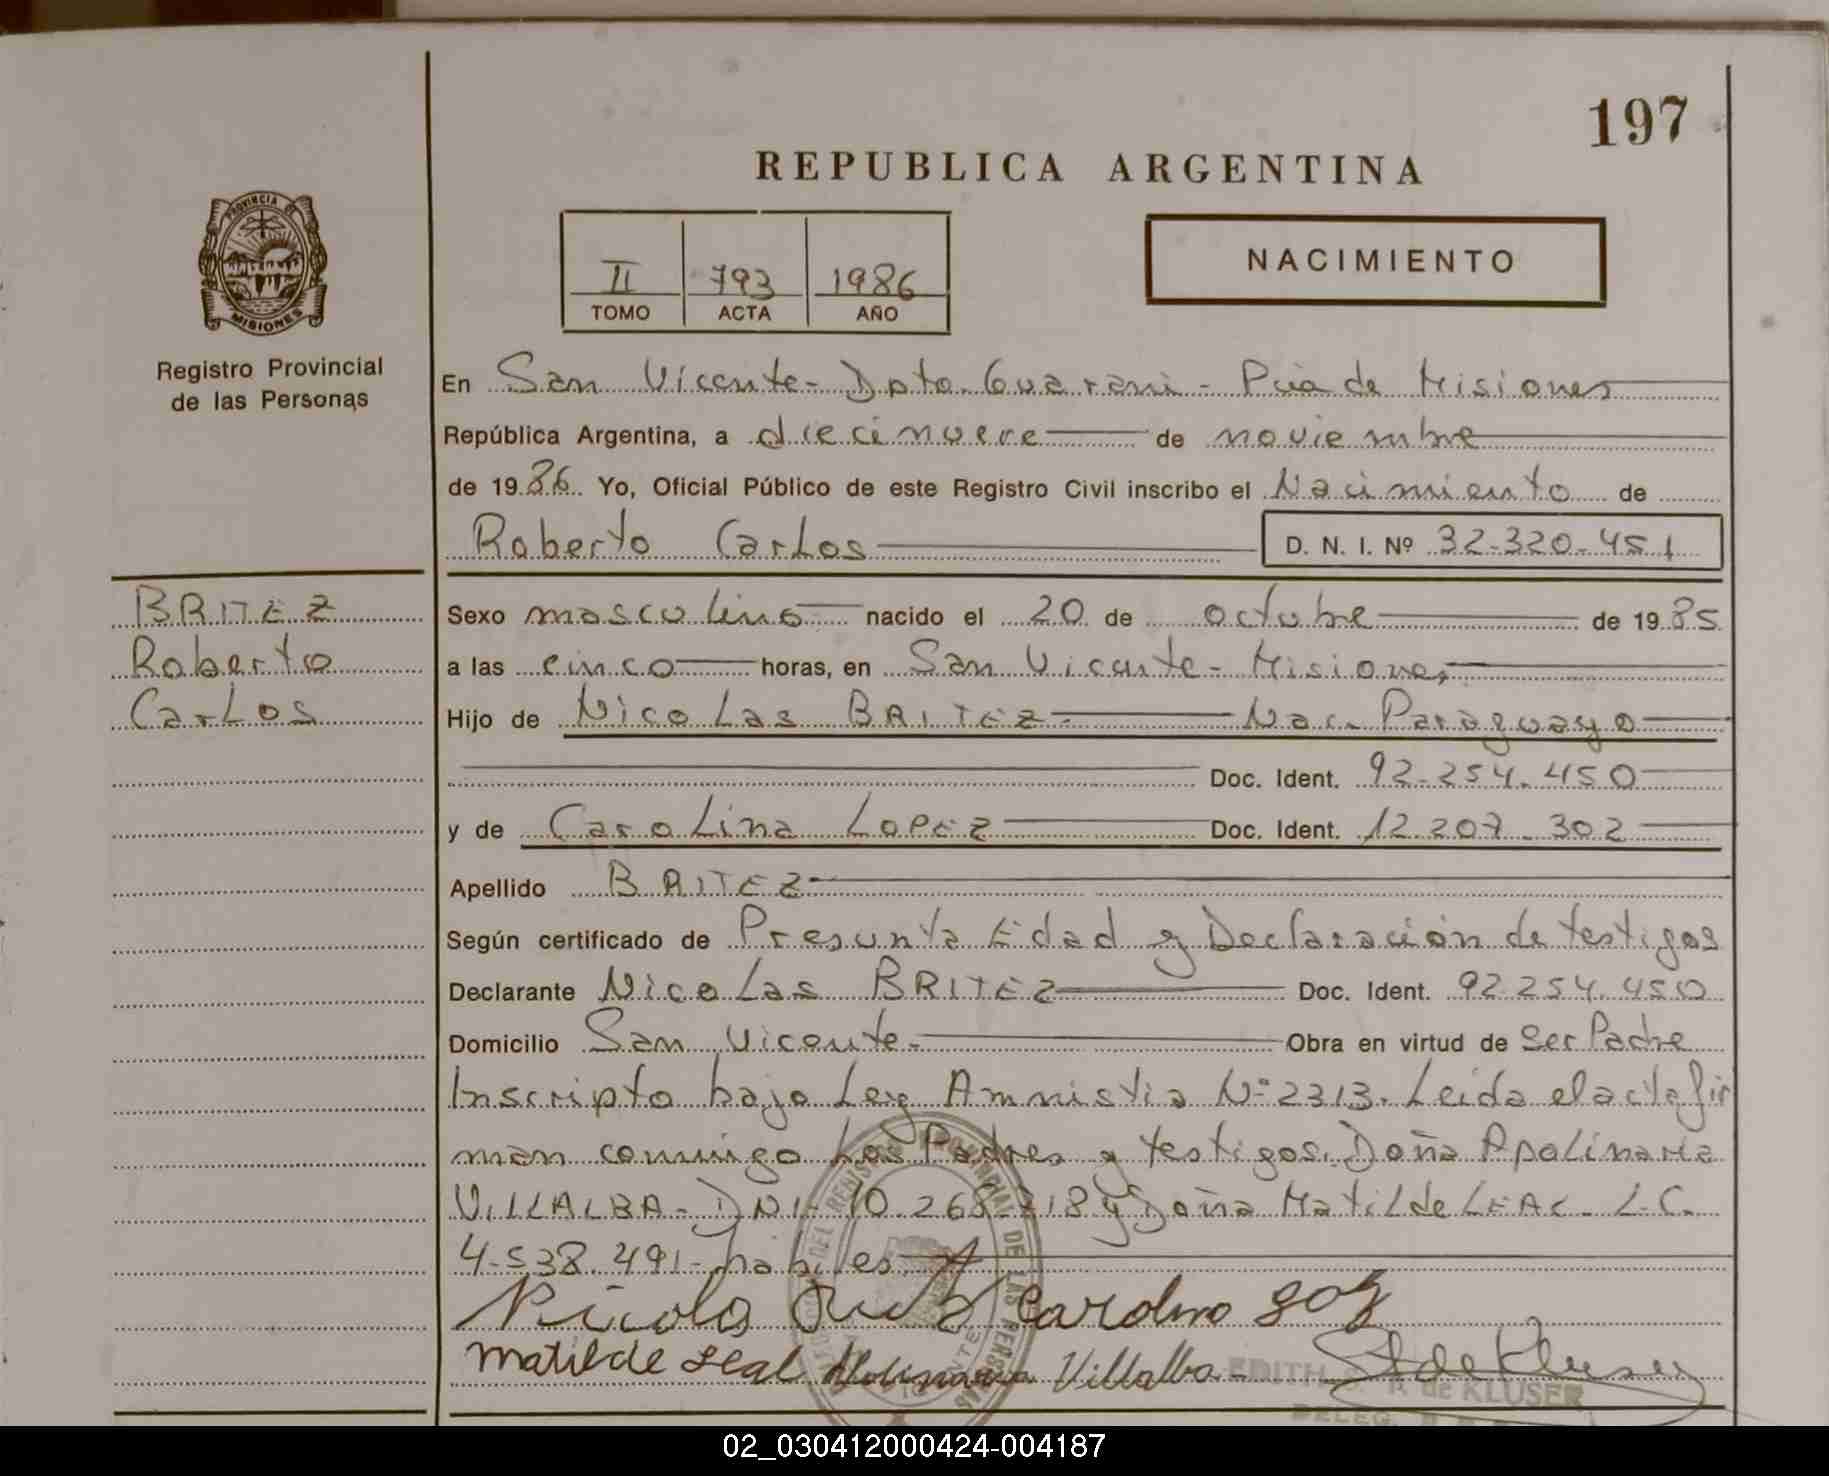 197
REPUBLICA ARGENTINA
PROVINCIA DE
MISIONES
Registro Provincial
de las Personas
II 793 1986
TOMO ACTA AÑO
NACIMIENTO
En San Vicente - Dpto. Guarani - Pcia de Misiones
República Argentina, a diecinueve de noviembre
de 1986. Yo, Oficial Público de este Registro Civil inscribo el Nacimiento de
Roberto Carlos D. N. I. Nº 32.320.451
BRITEZ
Roberto
Carlos
Sexo masculino nacido el 20 de octubre de 1985
a las cinco horas, en San Vicente - Misiones
Hijo de Nicolas BRITEZ - Nac. Paraguayo
Doc. Ident. 92.254.450
y de Carolina LOPEZ Doc. Ident. 12.207.302
Apellido BRITEZ
Según certificado de Presunta Edad y Declaración de testigos
Declarante Nicolas BRITEZ Doc. Ident. 92.254.450
Domicilio San Vicente - Obra en virtud de Ser Padre
Inscripto bajo Ley Amnistia Nº 2313. Leida el acta fir
man conmigo Los Padres y testigos. Doña Apolinaria
VILLALBA - DNI - 10.268.718 y Doña Matilde LEAL - L.C.
4.538.491 - habiles
Matilde Leal Apolinaria Villalba
EDITH de KLUSER
DELEG.
02_030412000424-004187